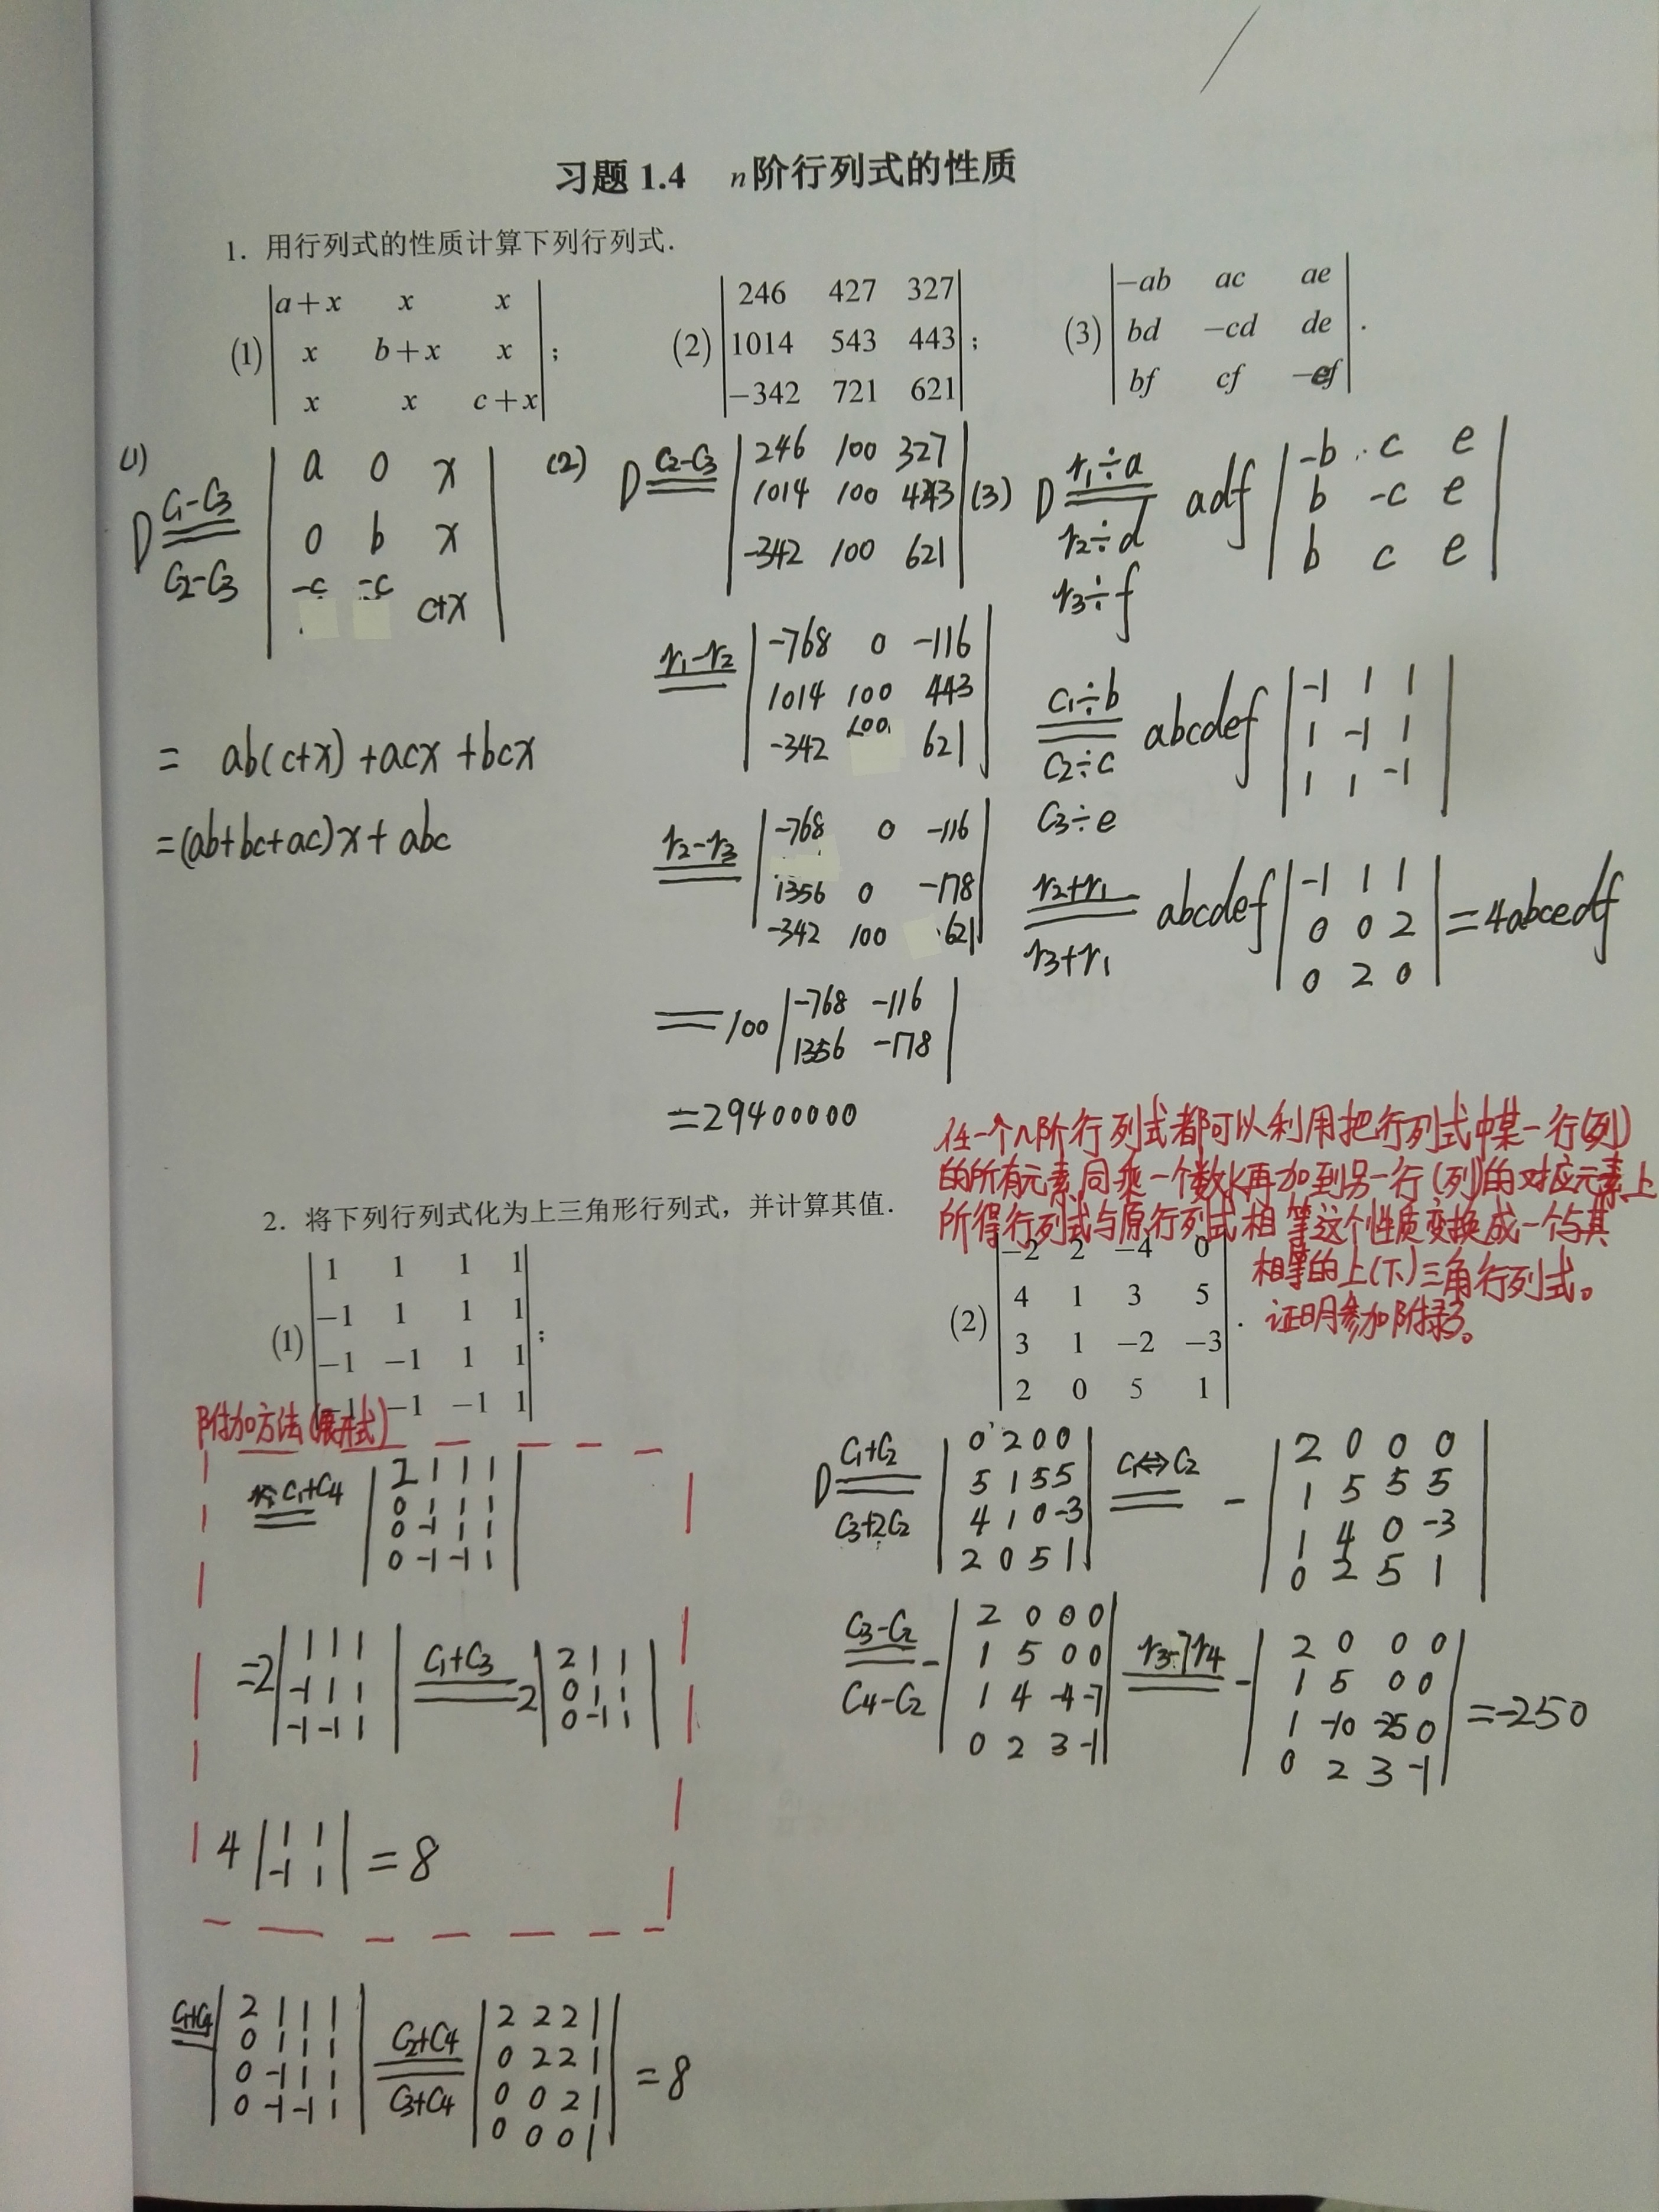 习题 1.4 n阶行列式的性质
1. 用行列式的性质计算下列行列式.
(1) |a+x x x|
|x b+x x|
|x x c+x| ;
(2) |246 427 327|
|1014 543 443|
|-342 721 621| ;
(3) |-ab ac ae|
|bd -cd de|
|bf cf -ef| .
(1)
D C1-C3
C2-C3
|a 0 x|
|0 b x|
|-c -c c+x|
= ab(c+x)+acx+bcx
=(ab+bc+ac)x+abc
(2)
D C2-C3
|246 100 327|
|1014 100 443|
|-342 100 621|
r1-r2
|-768 0 -116|
|1014 100 443|
|-342 100 621|
r2-r3
|-768 0 -116|
|1356 0 -178|
|-342 100 621|
=100 |-768 -116|
|1356 -178|
=29400000
(3) D r1÷a
r2÷d
r3÷f
adf |-b c e|
|b -c e|
|b c e|
C1÷b
C2÷c
C3÷e
abcdef |-1 1 1|
|1 -1 1|
|1 1 -1|
r2+r1
r3+r1
abcdef |-1 1 1|
|0 0 2|
|0 2 0|
=4abcedf
任一个n阶行列式都可以利用把行列式中某一行(列)
的所有元素同乘一个数k再加到另一行(列)的对应元素上
所得行列式与原行列式相等这个性质变换成一个与其
相等的上(下)三角行列式。
证明参加附录3。
2. 将下列行列式化为上三角形行列式，并计算其值.
(1) |1 1 1 1|
|-1 1 1 1|
|-1 -1 1 1|
|-1 -1 -1 1| ;
(2) |-2 2 -4 0|
|4 1 3 5|
|3 1 -2 -3|
|2 0 5 1| .
附加方法(展开式)
C1+C4
|2 1 1 1|
|0 1 1 1|
|0 -1 1 1|
|0 -1 -1 1|
=2 |1 1 1|
|-1 1 1|
|-1 -1 1|
C1+C3
2 |2 1 1|
|0 1 1|
|0 -1 1|
4 |1 1|
|-1 1|
=8
C1+C4
|2 1 1 1|
|0 1 1 1|
|0 -1 1 1|
|0 -1 -1 1|
C2+C4
C3+C4
|2 2 2 1|
|0 2 2 1|
|0 0 2 1|
|0 0 0 1|
=8
D C1+C2
C3+2C2
|0 2 0 0|
|5 1 5 5|
|4 1 0 -3|
|2 0 5 1|
C1⇔C2
- |2 0 0 0|
|1 5 5 5|
|1 4 0 -3|
|0 2 5 1|
C3-C2
C4-C2
- |2 0 0 0|
|1 5 0 0|
|1 4 -4 -7|
|0 2 3 -1|
r3-7r4
- |2 0 0 0|
|1 5 0 0|
|1 -10 -25 0|
|0 2 3 -1|
=-250